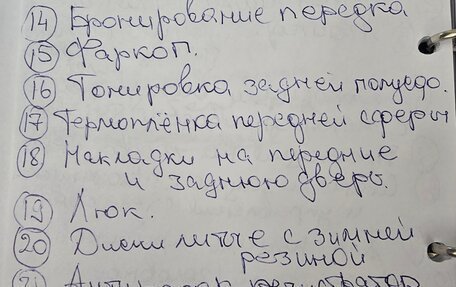 14 Бронирование передка
15 Фаркоп.
16 Тонировка задней полусф.
17 Термоплёнка передней сферы
18 Накладки на передние
и заднюю дверь.
19 Люк.
20 Диски литые с зимней
резиной
21